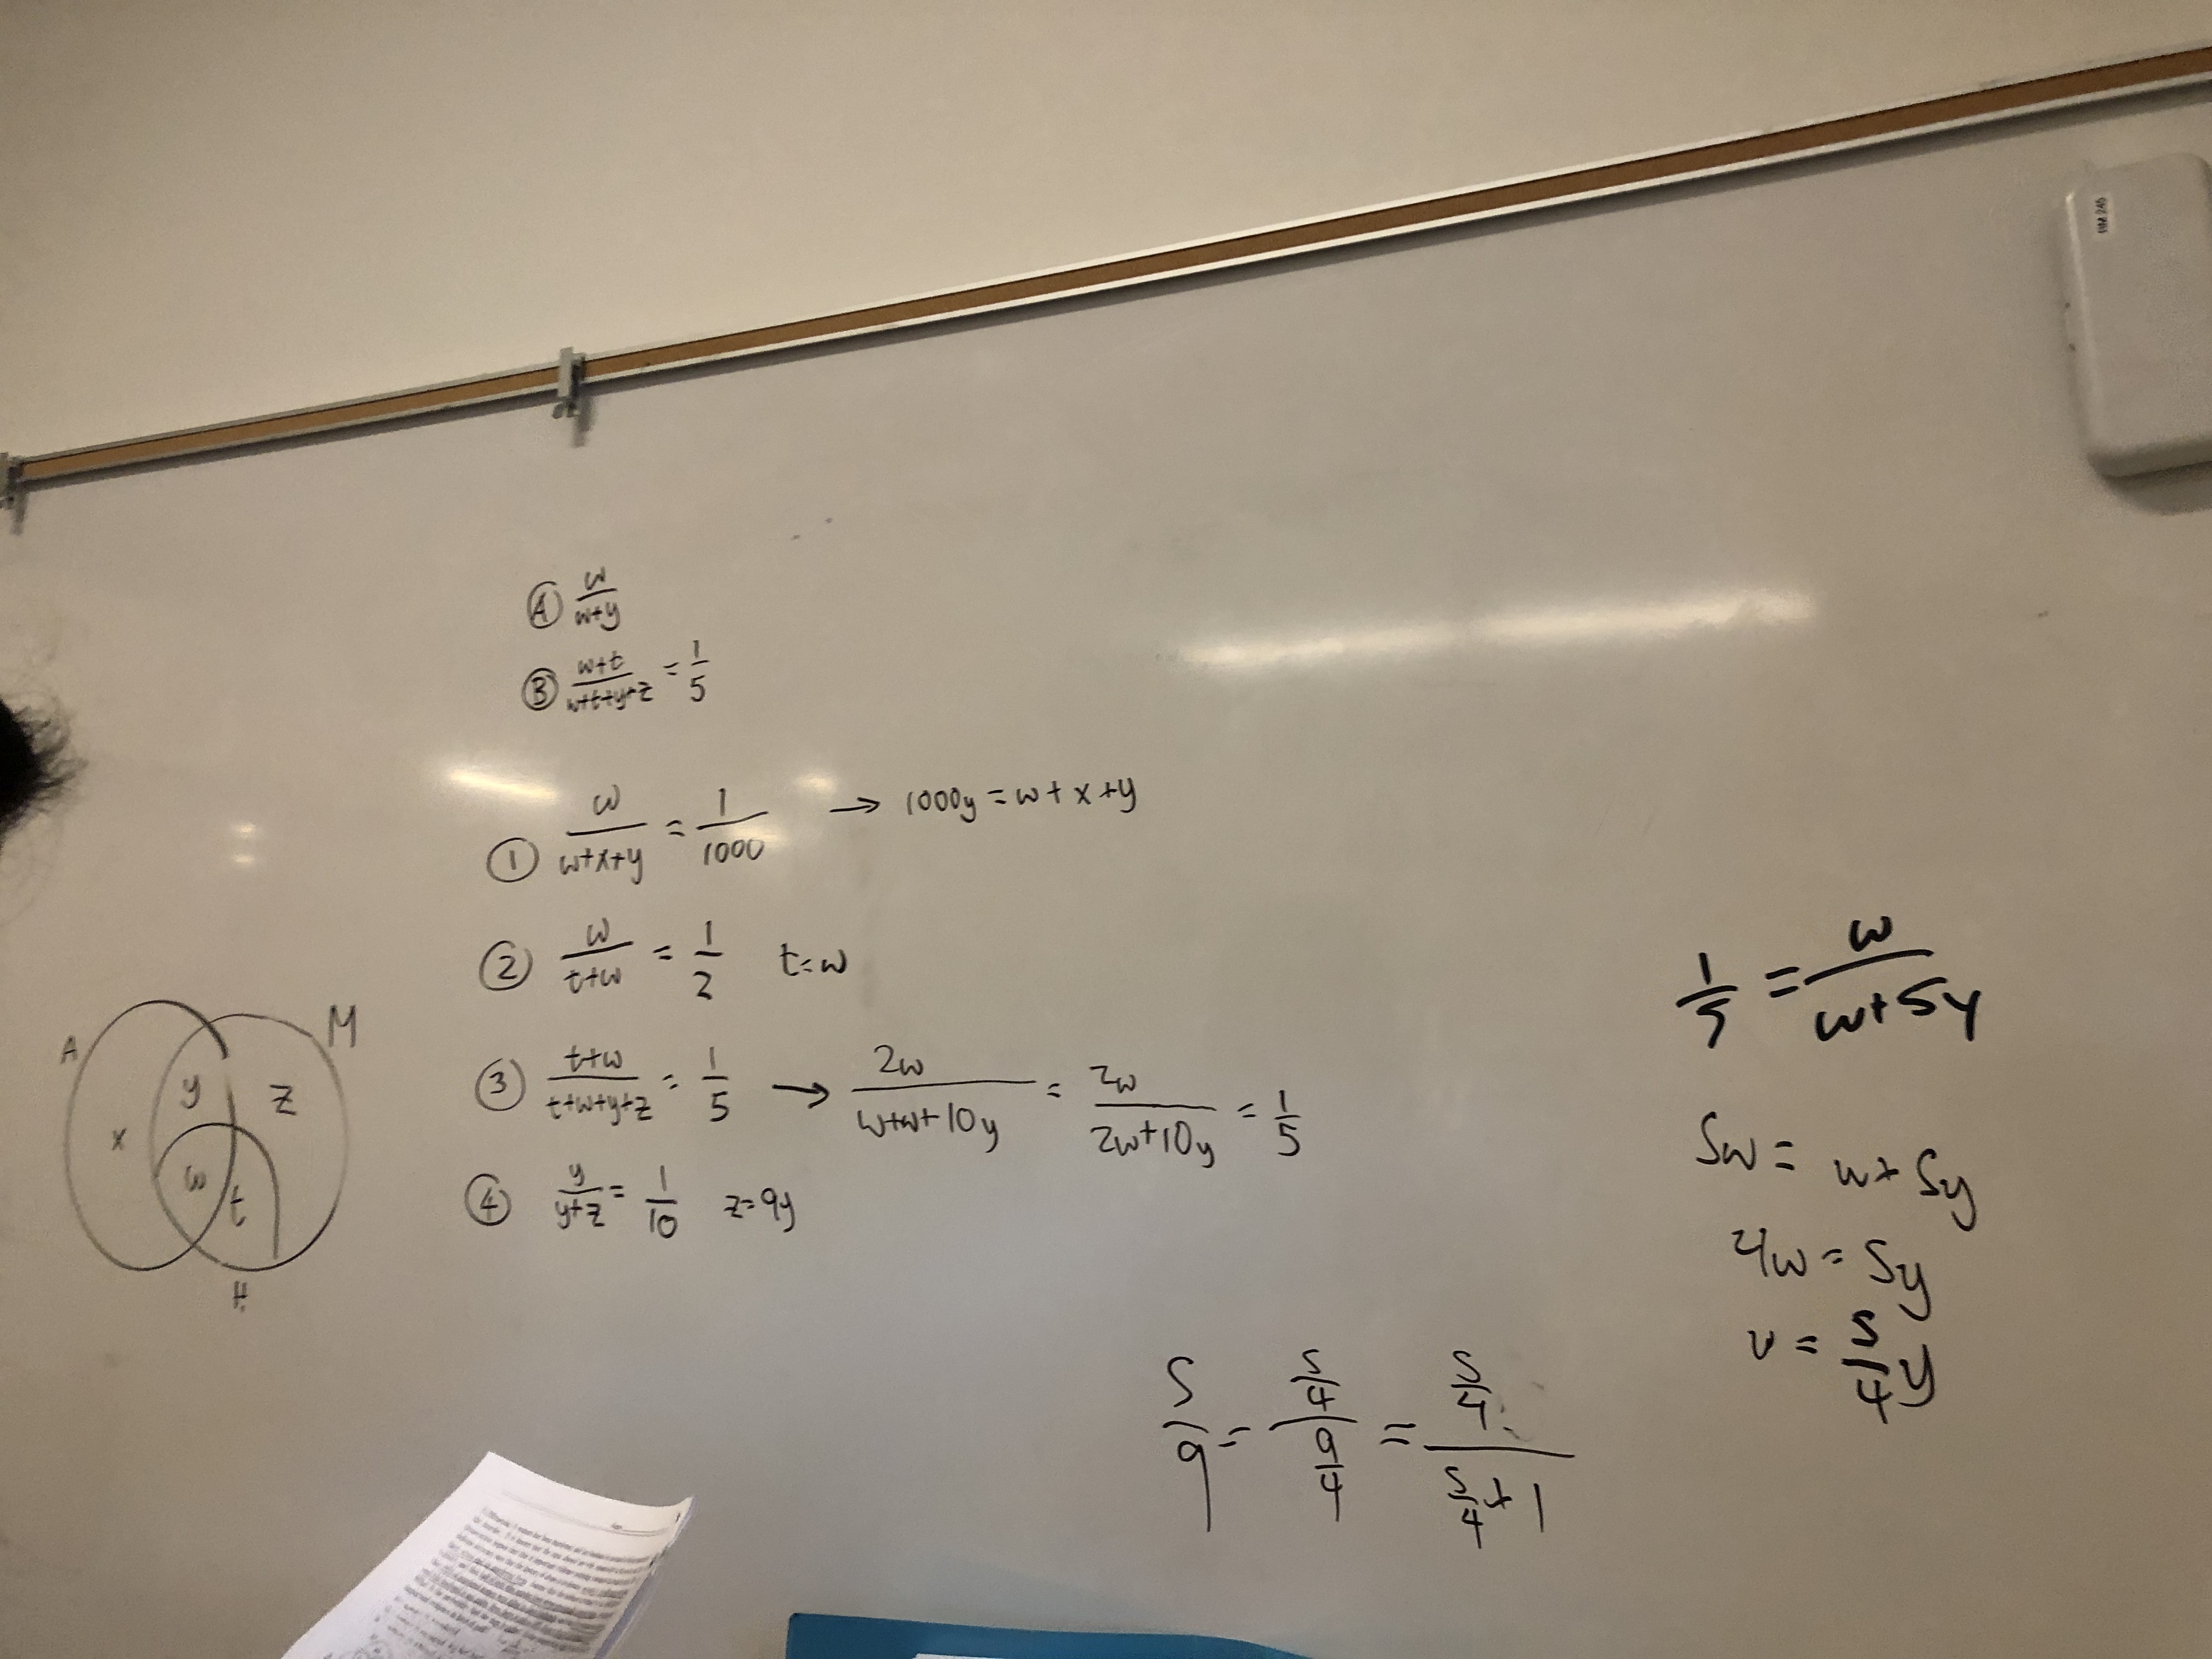 RM 245
Ⓐ w/(w+y)
Ⓑ (w+t)/(w+t+y+z) = 1/5
① w/(w+x+y) = 1/1000 → 1000y = w + x + y
② w/(t+w) = 1/2 t=w
③ (t+w)/(t+w+y+z) = 1/5 → 2w/(w+w+10y) = 2w/(2w+10y) = 1/5
④ y/(y+z) = 1/10 z=9y
A
M
y
z
x
w
t
H
1/5 = w/(w+5y)
5w = w+5y
4w = 5y
w = 5/4 y
5/9 = (5/4)/(9/4) = (5/4)/(5/4+1)